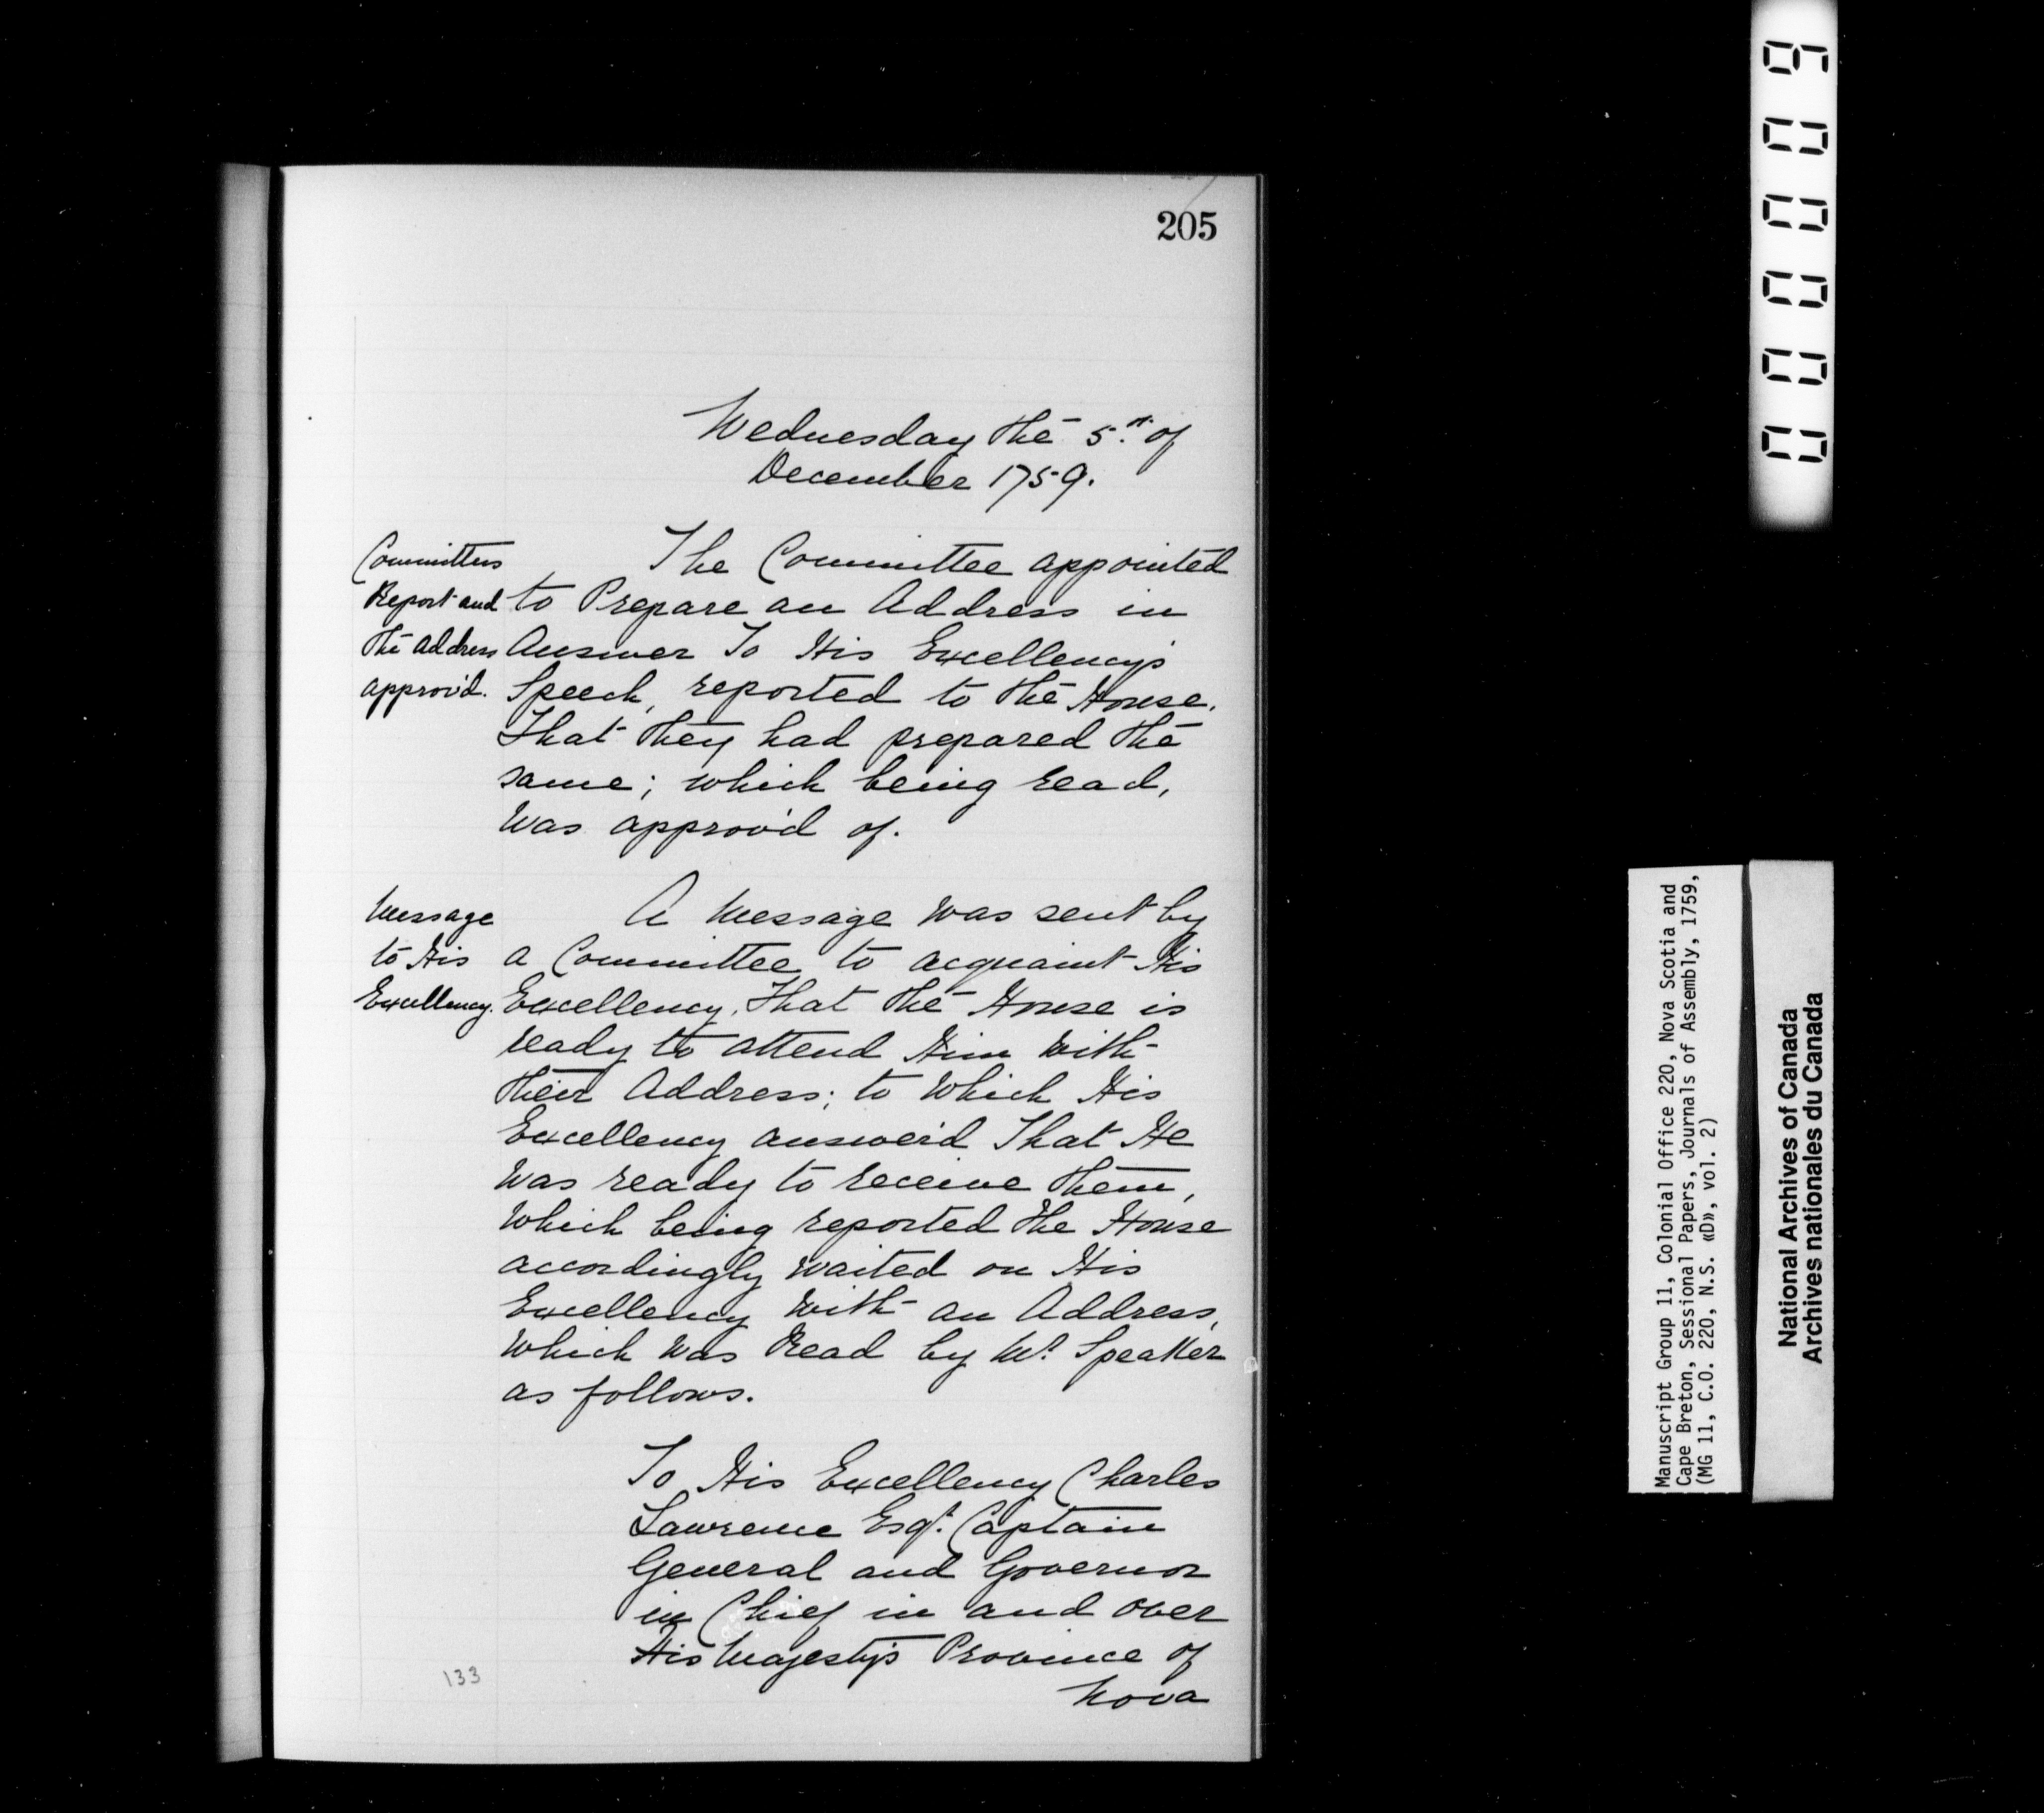 205
Wednesday the 5.th of
December 1759.
Committees
Report and
the address
approv'd.
The Committee appointed
to Prepare an Address in
Answer To His Excellency's
Speech, reported to the House,
That they had prepared the
same; which being read,
was approv'd of.
Message
to His
Excellency.
A Message was sent by
a Committee to acquaint His
Excellency, That the House is
ready to attend Him with
their Address; to which His
Excellency answer'd That He
was ready to receive them,
which being reported the House
accordingly waited on His
Excellency with an Address,
which was Read by Mr. Speaker
as follows.
To His Excellency Charles
Lawrence Esqr. Captain
General and Governor
in Chief in and over
His Majesty's Province of
Nova
133
000009
Manuscript Group 11, Colonial Office 220, Nova Scotia and
Cape Breton, Sessional Papers, Journals of Assembly, 1759,
(MG 11, C.O. 220, N.S. «D», vol. 2)
National Archives of Canada
Archives nationales du Canada